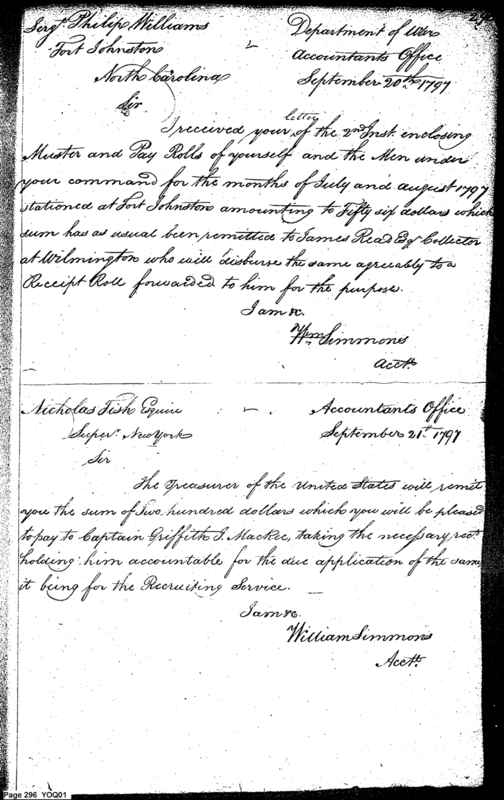 Sergt. Philip Williams - Department of War
Fort Johnston Accountants Office
North Carolina September 20th 1797
Sir
I received your letter of the 2nd Inst. enclosing
Muster and Pay Rolls of yourself and the Men under
your command for the months of July and august 1797
stationed at Fort Johnston amounting to Fifty six dollars which
sum has as usual been remitted to James Read Esqr Collector
at Wilmington who will disburse the same agreeably to a
Receipt Roll forwarded to him for the purpose.
I am &c.
Wm Simmons
Acctt.
Nicholas Fish Esquire - Accountants Office
Super. New York September 21st 1797
Sir
The Treasurer of the United States will remit
you the sum of Two hundred dollars which you will be pleased
to pay to Captain Griffith J. MacRee, taking the necessary rects.
holding him accountable for the due application of the same
it being for the Recruiting Service.
I am &c.
William Simmons
Acctt.
Page 296 YOQ01